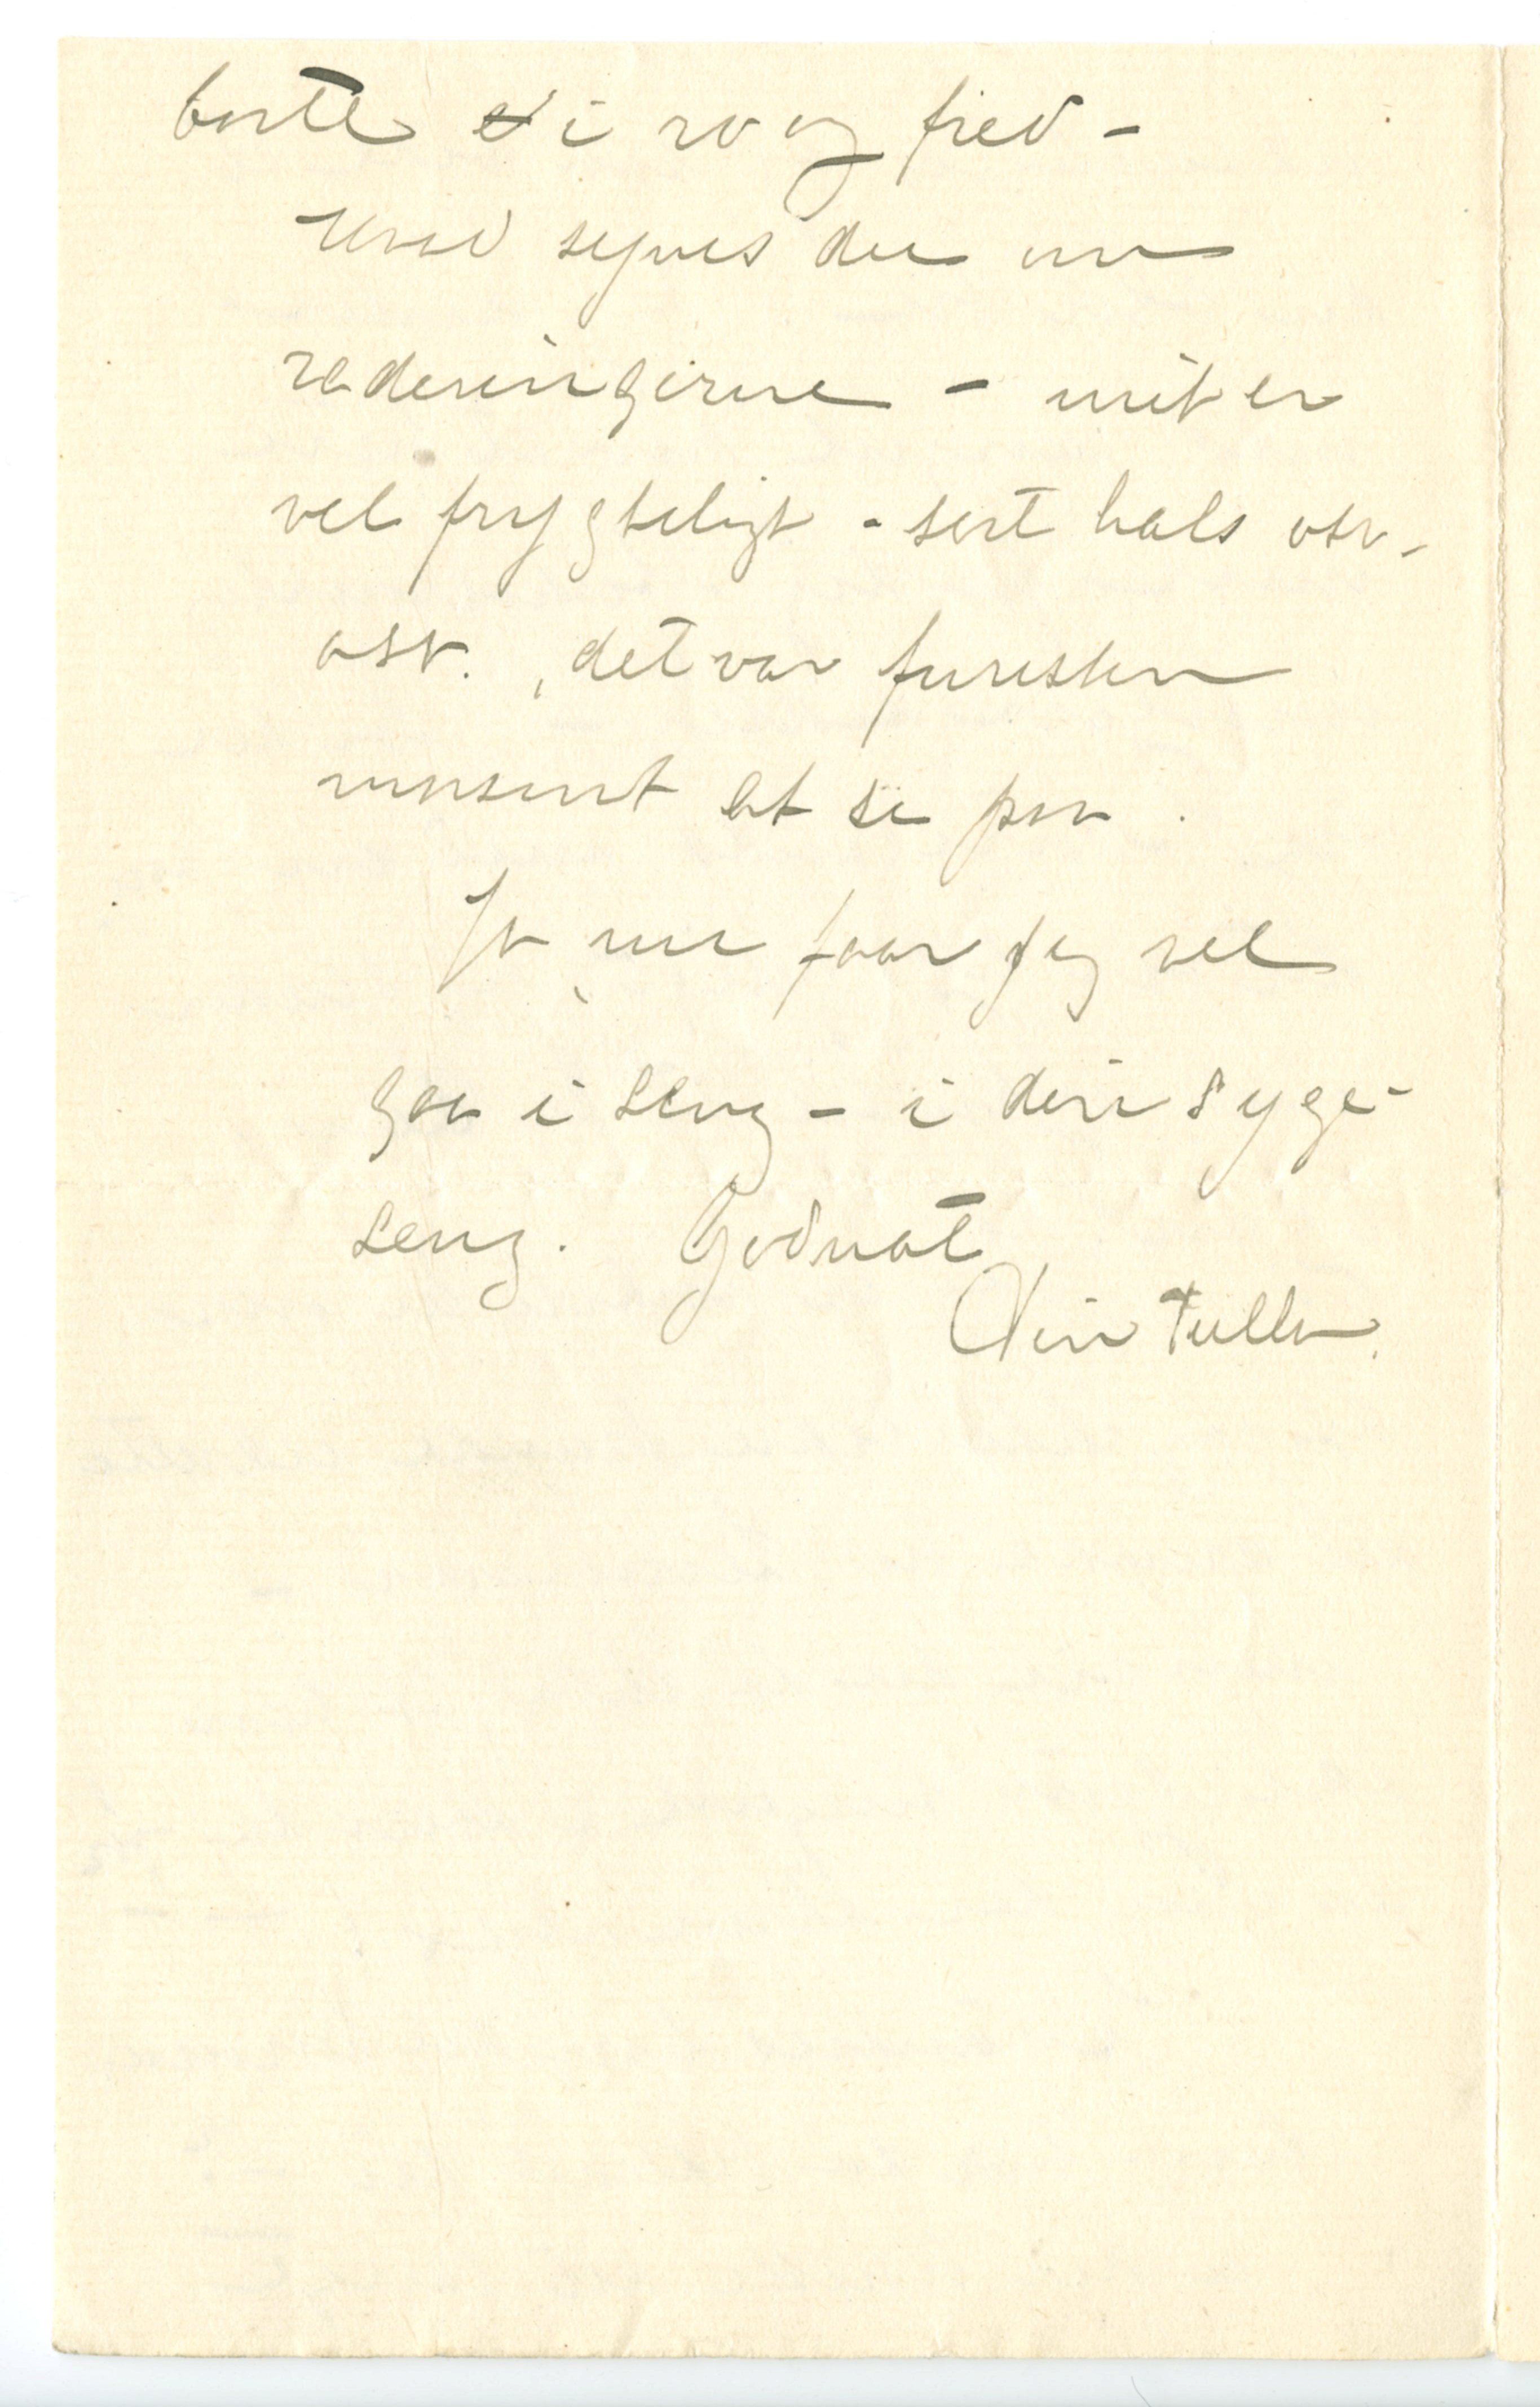 borte i ro og fred -
Hvad synes du om
raderingerne - mit er
vel frygteligt - sort hals osv.
osv., det var foresten
morsomt at se paa.
Ja nu faar jeg vel
gaa i seng - i din syge-
seng. Godnat
Din Tulla.